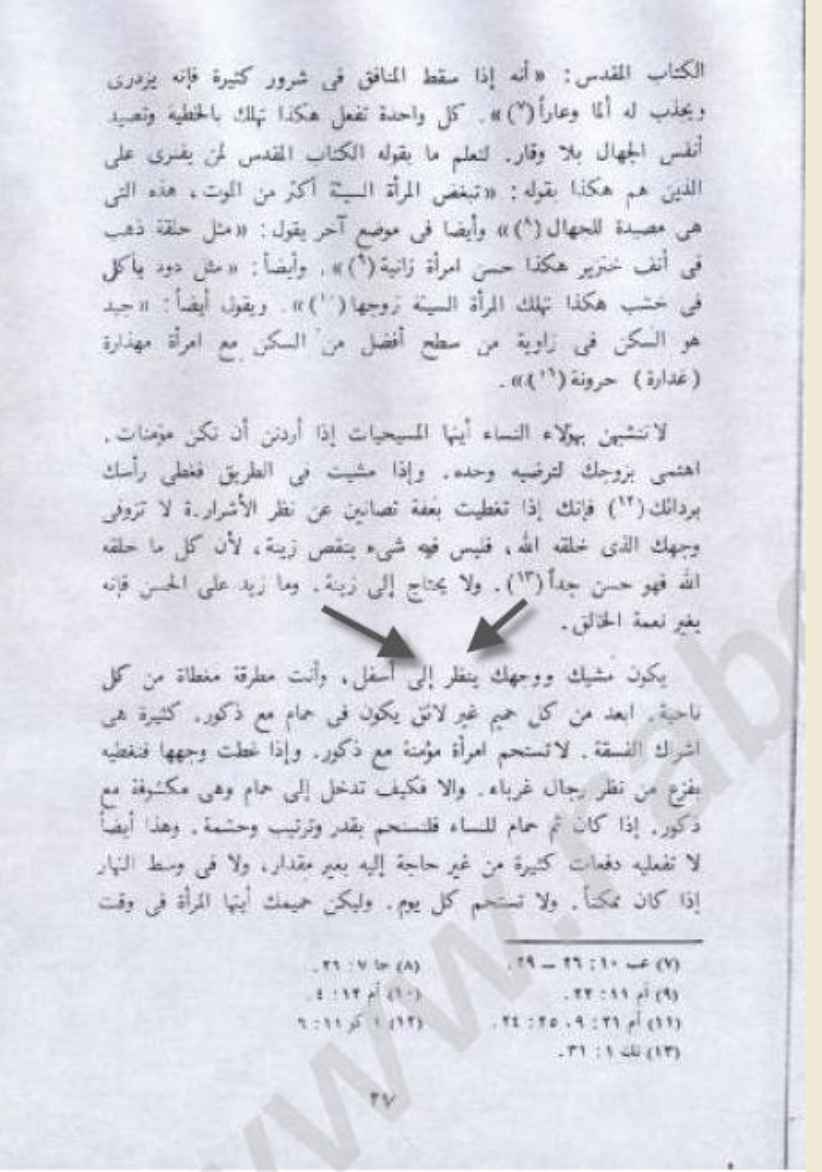 الكتاب المقدس: «أنه إذا سقط المنافق فى شرور كثيرة فإنه يزدرى
ويجذب له ألما وعاراً(٧)». كل واحدة تفعل هكذا تهلك بالخطية وتصيد
أنفس الجهال بلا وقار. لنعلم ما يقوله الكتاب المقدس لمن يفترى على
الذين هم هكذا بقوله: «تبغض المرأة السيئة أكثر من الموت، هذه التى
هى مصيدة للجهال(٨)» وأيضا فى موضع آخر يقول: «مثل حلقة ذهب
فى أنف خنزير هكذا حسن امرأة زانية(٩)». وأيضاً: «مثل دود يأكل
فى خشب هكذا تهلك المرأة السيئة زوجها(١٠)». ويقول أيضاً: «جيد
هو السكن فى زاوية من سطح أفضل من السكن مع امرأة مهذارة
(غدارة) حرونة(١١)».
لا تتشبهن بهؤلاء النساء أيتها المسيحيات إذا أردتن أن تكن مؤمنات.
اهتمى بزوجك لترضيه وحده. وإذا مشيت فى الطريق فغطى رأسك
بردائك(١٢) فإنك إذا تغطيت بعفة تصانين عن نظر الأشرار.ة لا تزوقى
وجهك الذى خلقه الله، فليس فيه شىء ينقص زينة، لأن كل ما خلقه
الله فهو حسن جداً(١٣). ولا يحتاج إلى زينة. وما زيد على الحسن فإنه
يغير نعمة الخالق.
يكون مشيك ووجهك ينظر إلى أسفل، وأنت مطرقة مغطاة من كل
ناحية. ابعد من كل حميم غير لائق يكون فى حمام مع ذكور. كثيرة هى
اشراك الفسقة. لا تستحم امرأة مؤمنة مع ذكور. وإذا غطت وجهها فتغطيه
بفزع من نظر رجال غرباء. والا فكيف تدخل إلى حمام وهى مكشوفة مع
ذكور. إذا كان ثم حمام للنساء فلتستحم بقدر وترتيب وحشمة. وهذا أيضاً
لا تفعليه دفعات كثيرة من غير حاجة إليه بغير مقدار، ولا فى وسط النهار
إذا كان ممكناً. ولا تستحم كل يوم. وليكن حميمك أيتها المرأة فى وقت
(٧) عب ١٠: ٢٦ – ٢٩. (٨) جا ٧: ٢٦.
(٩) أم ١١: ٢٢. (١٠) أم ١٢: ٤.
(١١) أم ٢١: ٩، ٢٥: ٢٤. (١٢) ١ كو ١١: ٦
(١٣) تك ١: ٣١.
٢٧